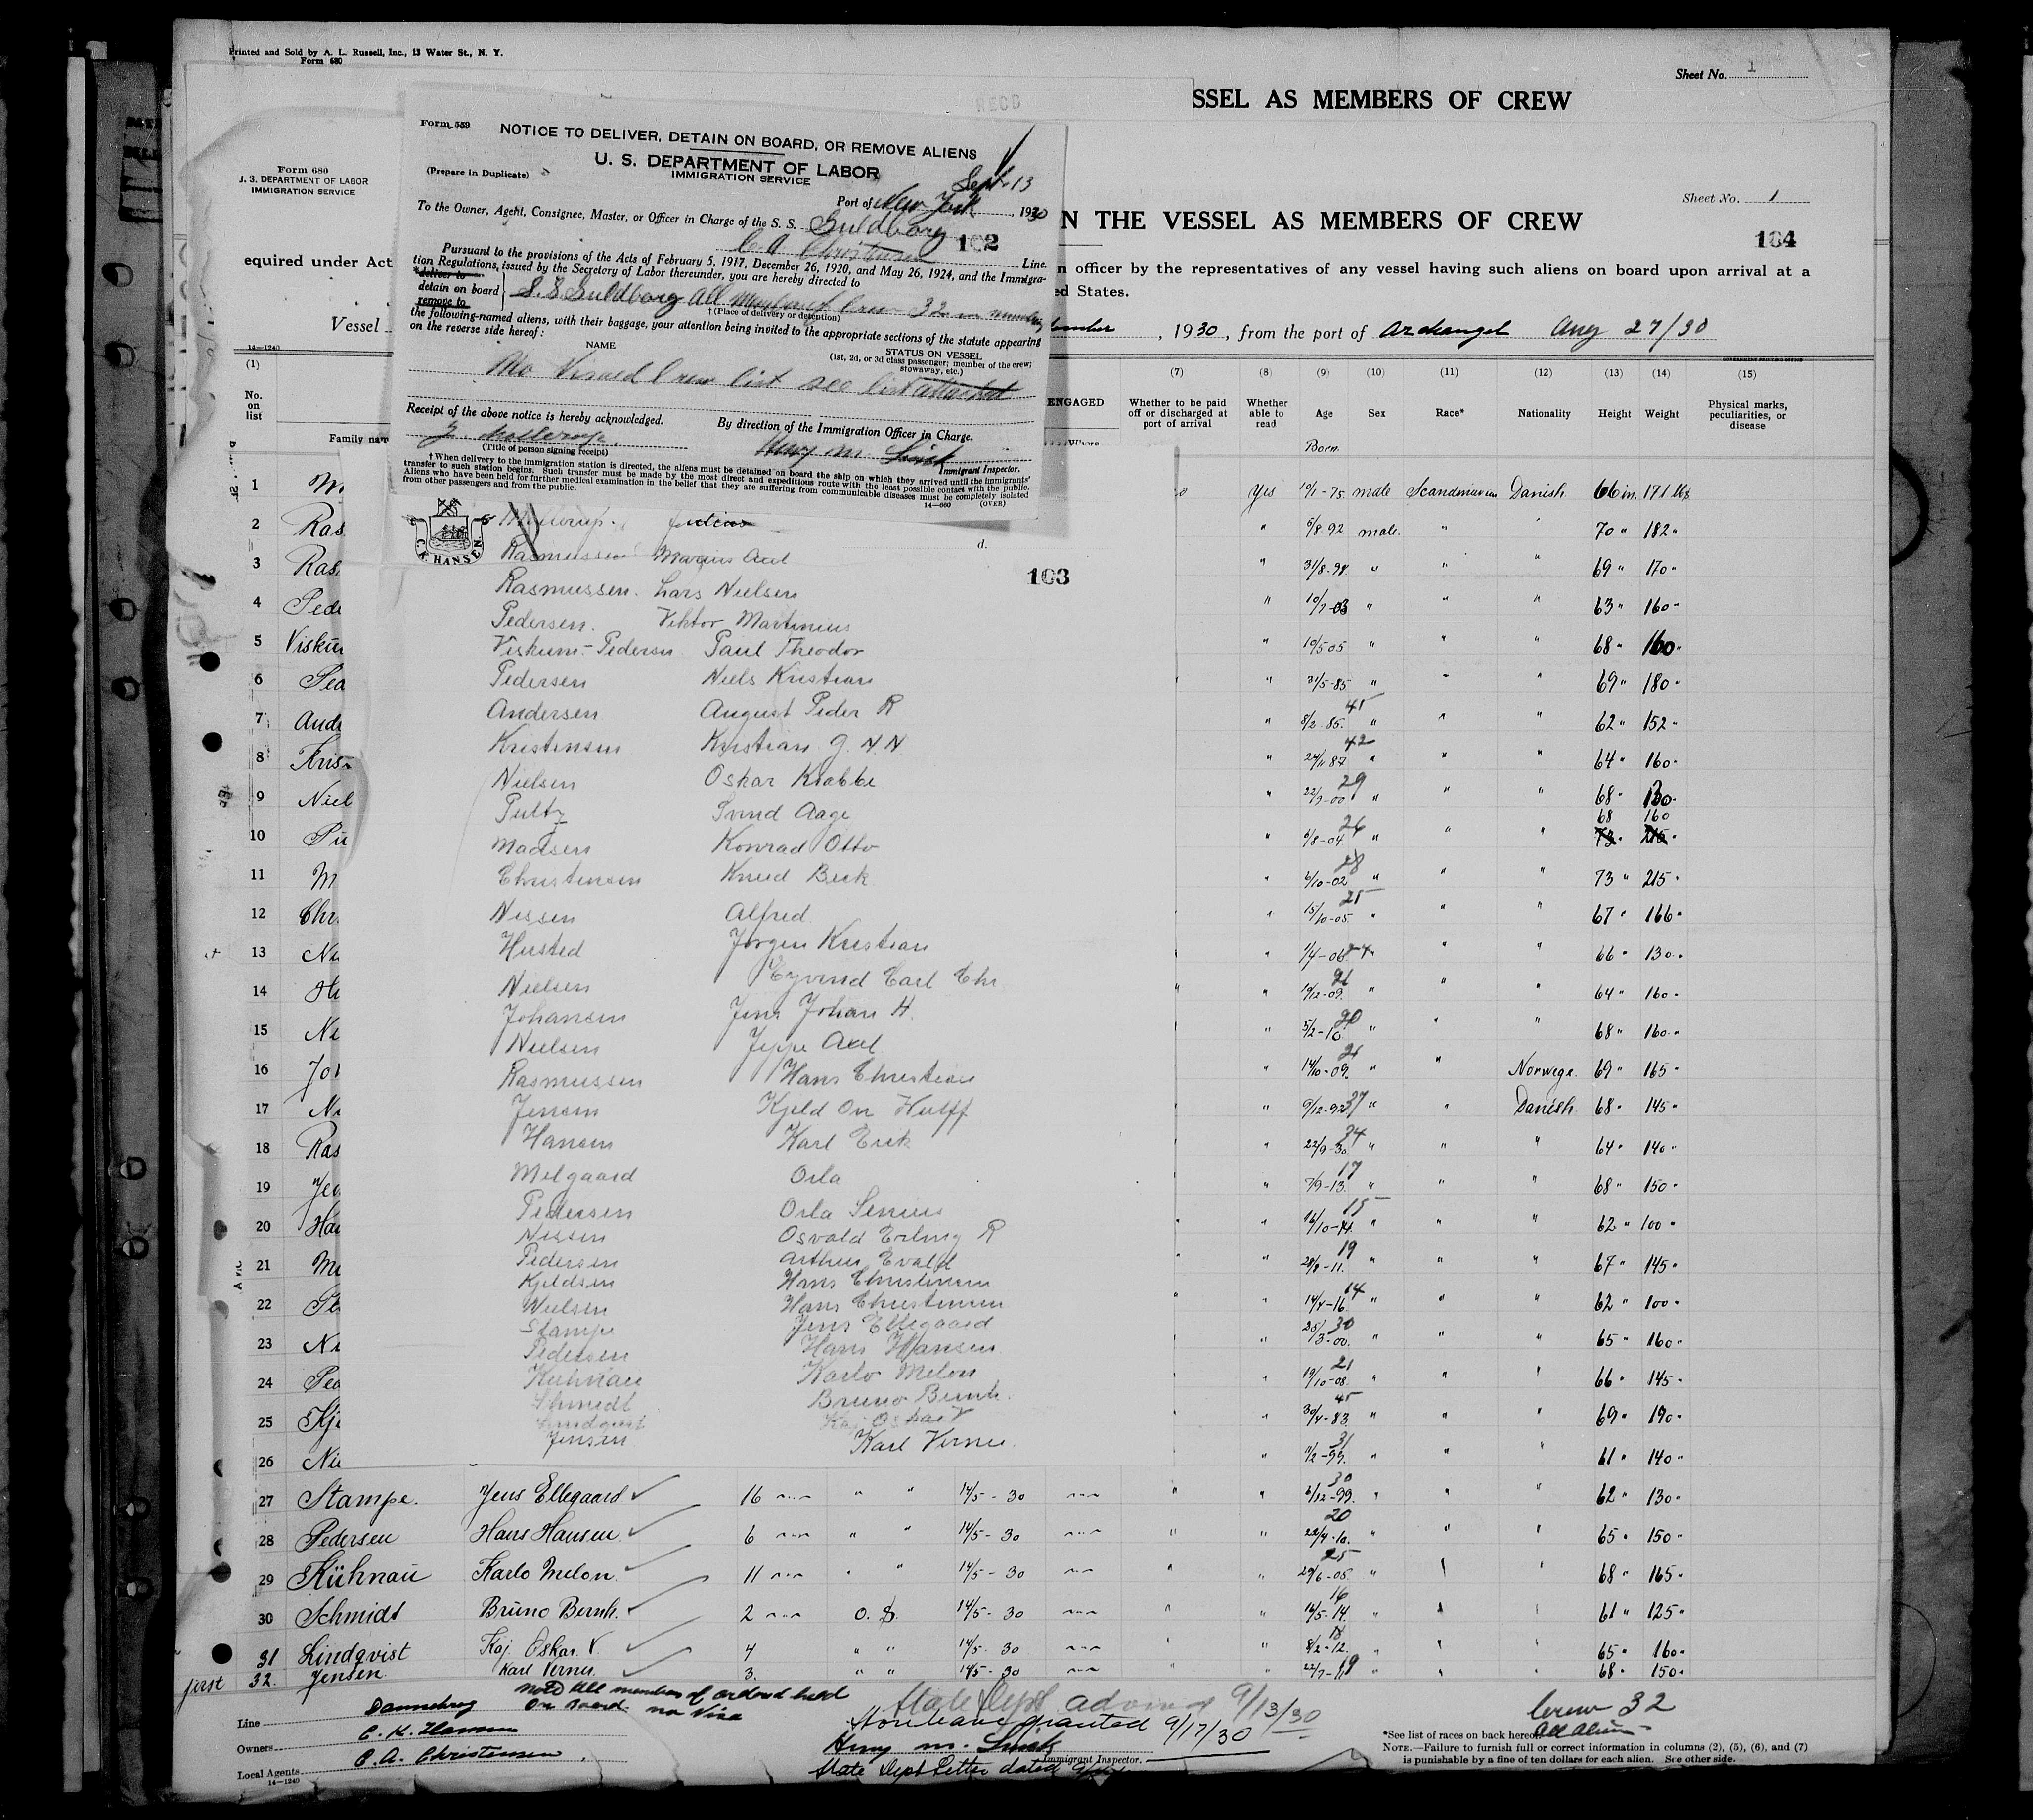 Printed and Sold by A. L. Russell, Inc., 13 Water St., N. Y.
Form 680
Sheet No. 1
SSEL AS MEMBERS OF CREW
RECD
Form 559
NOTICE TO DELIVER, DETAIN ON BOARD, OR REMOVE ALIENS
U. S. DEPARTMENT OF LABOR
IMMIGRATION SERVICE
(Prepare in Duplicate)
Sept. 13
Port of New York, 1930
To the Owner, Agent, Consignee, Master, or Officer in Charge of the S. S. Guldborg
C. A. Christensen Line.
102
Pursuant to the provisions of the Acts of February 5, 1917, December 26, 1920, and May 26, 1924, and the Immigra-
tion Regulations, issued by the Secretary of Labor thereunder, you are hereby directed to
*deliver to
detain on board
remove to
S.S. Guldborg all members of Crew 32 in number
†(Place of delivery or detention)
the following-named aliens, with their baggage, your attention being invited to the appropriate sections of the statute appearing
on the reverse side hereof:
NAME
STATUS ON VESSEL
(1st, 2d, or 3d class passenger; member of the crew;
stowaway, etc.)
No Visaed Crew list see list attached
Receipt of the above notice is hereby acknowledged.
By direction of the Immigration Officer in Charge.
J. Mollerup.
(Title of person signing receipt)
Henry M. Smith
Immigrant Inspector.
†When delivery to the immigration station is directed, the aliens must be detained on board the ship on which they arrived until the immigrants'
transfer to such station begins. Such transfer must be made by the most direct and expeditious route with the least possible contact with the public.
Aliens who have been held for further medical examination in the belief that they are suffering from communicable diseases must be completely isolated
from other passengers and from the public.
14—660
(OVER)
Form 680
U. S. DEPARTMENT OF LABOR
IMMIGRATION SERVICE
Sheet No. 1
N THE VESSEL AS MEMBERS OF CREW
104
equired under Act
n officer by the representatives of any vessel having such aliens on board upon arrival at a
ed States.
Vessel
tember, 1930, from the port of Archangel Aug 27/30
14—1240
GOVERNMENT PRINTING OFFICE
(1) (7) (8) (9) (10) (11) (12) (13) (14) (15)
No. on list
Family nam
ENGAGED
Where
Whether to be paid off or discharged at port of arrival
Whether able to read
Age
Born
Sex
Race*
Nationality
Height
Weight
Physical marks, peculiarities, or disease
C. K. HANSEN
103
Mollerup. Julius
Rasmussen Marius Axel
Rasmussen. Lars Nielsen
Pedersen. Viktor Martinius
Viskum-Pedersen Paul Theodor
Pedersen Niels Kristian
Andersen August Peder R
Kristensen Kristian G. N. N
Nielsen Oskar Krabbe
Pultz Svend Aage
Madsen Konrad Otto
Christensen Knud Beck
Nissen Alfred
Husted Jørgen Kristian
Nielsen Eyvind Carl Chr
Johansen Jens Johan H.
Nielsen Jeppe Axel
Rasmussen Hans Christian
Jensen Kjeld On Hulff
Hansen Karl Erik
Melgaard Orla
Pedersen Orla Senius
Nissen Osvald Erling R
Pedersen Arthur Evald
Kjeldsen Hans Christensen
Nielsen Hans Christensen
Stampe Jens Ellegaard
Pedersen Hans Hansen
Kuhnau Karlo Melon
Schmidt Bruno Bernh.
Lindqvist Kaj Oskar V
Jensen Karl Verner
1 M Yes 10/1-75 male Scandinavian Danish 66 in. 171 lbs
2 Ras " 5/8 92 male. " " 70 " 182 "
3 Ras " 31/8-98. " " " 69 " 170 "
4 Pede " 10/7-03 " " " 63 " 160 "
5 Visku " 19/5 05 " " " 68 " 160 "
6 Ped " 31/5-85 " " " 69 " 180 "
7 Ande " 8/2 85. 45 " " " 62 " 152 "
8 Kris " 24/11 87 42 " " " 64 " 160 "
9 Niel " 22/9-00 29 " " " 68 " 130 "
68 160
10 Pu " 6/8-04 26 " " " 73 " 215 "
11 M " 6/10-02 28 " " " 73 " 215 "
12 Chr " 15/10-05 25 " " " 67 " 166 "
13 Ni " 1/4-06 24 " " " 66 " 130 "
14 Hu " 19/12-09. 21 " " " 64 " 160 "
15 Ni " 5/2-10 20 " " " 68 " 160 "
16 Joh " 14/10-09. 21 " " Norwege. 69 " 165 "
17 Ni " 9/12-92 37 " " Danish 68 " 145 "
18 Ras " 22/9-30. 34 " " " 64 " 140 "
19 Jen " 7/9-13. 17 " " " 68 " 150 "
20 Han " 16/10-14. 15 " " " 62 " 100 "
21 Me " 28/8-11. 19 " " " 67 " 145 "
22 Pe " 14/4-16. 14 " " " 62 " 100 "
23 Ni " 25/3-00. 30 " " " 65 " 160 "
24 Ped " 19/10-08. 21 " " " 66 " 145 "
25 Kje " 30/4-83. 45 " " " 69 " 190 "
26 Nie " 7/2-99. 31 " " " 61 " 140 "
27 Stampe. Jens Ellegaard 16 " " 14/5-30 " " 6/12-99. 30 " " " 62 " 130 "
28 Pedersen Hans Hansen 6 " " 14/5-30 " " 22/4-10. 20 " " " 65 " 150 "
29 Kühnau Karlo Melon. 11 " " 14/5-30 " " 29/6-05 25 " " " 68 " 165 "
30 Schmidt Bruno Bernh. 2 O. S. 14/5-30 " " 16/5-14. 16 " " " 61 " 125 "
31 Lindqvist Kaj Oskar. V 4 " " 14/5-30 " " 8/2-12. 18 " " " 65 " 160 "
first 32. Jensen. Karl Verner. 3. " " 14/5-30 " " 22/7-11 19 " " " 68 " 150 "
Line Dannebrog
Owners C. K. Hansen
Local Agents C. A. Christensen
14—1240
Note All members of ordered held
On Board. no Visa
State Dept advised 9/13/30
Shore leave granted 9/17/30
Henry M. Smith
Immigrant Inspector.
State Dept Letter dated
Crew 32
All Aliens
*See list of races on back hereof.
NOTE.—Failure to furnish full or correct information in columns (2), (5), (6), and (7)
is punishable by a fine of ten dollars for each alien. See other side.